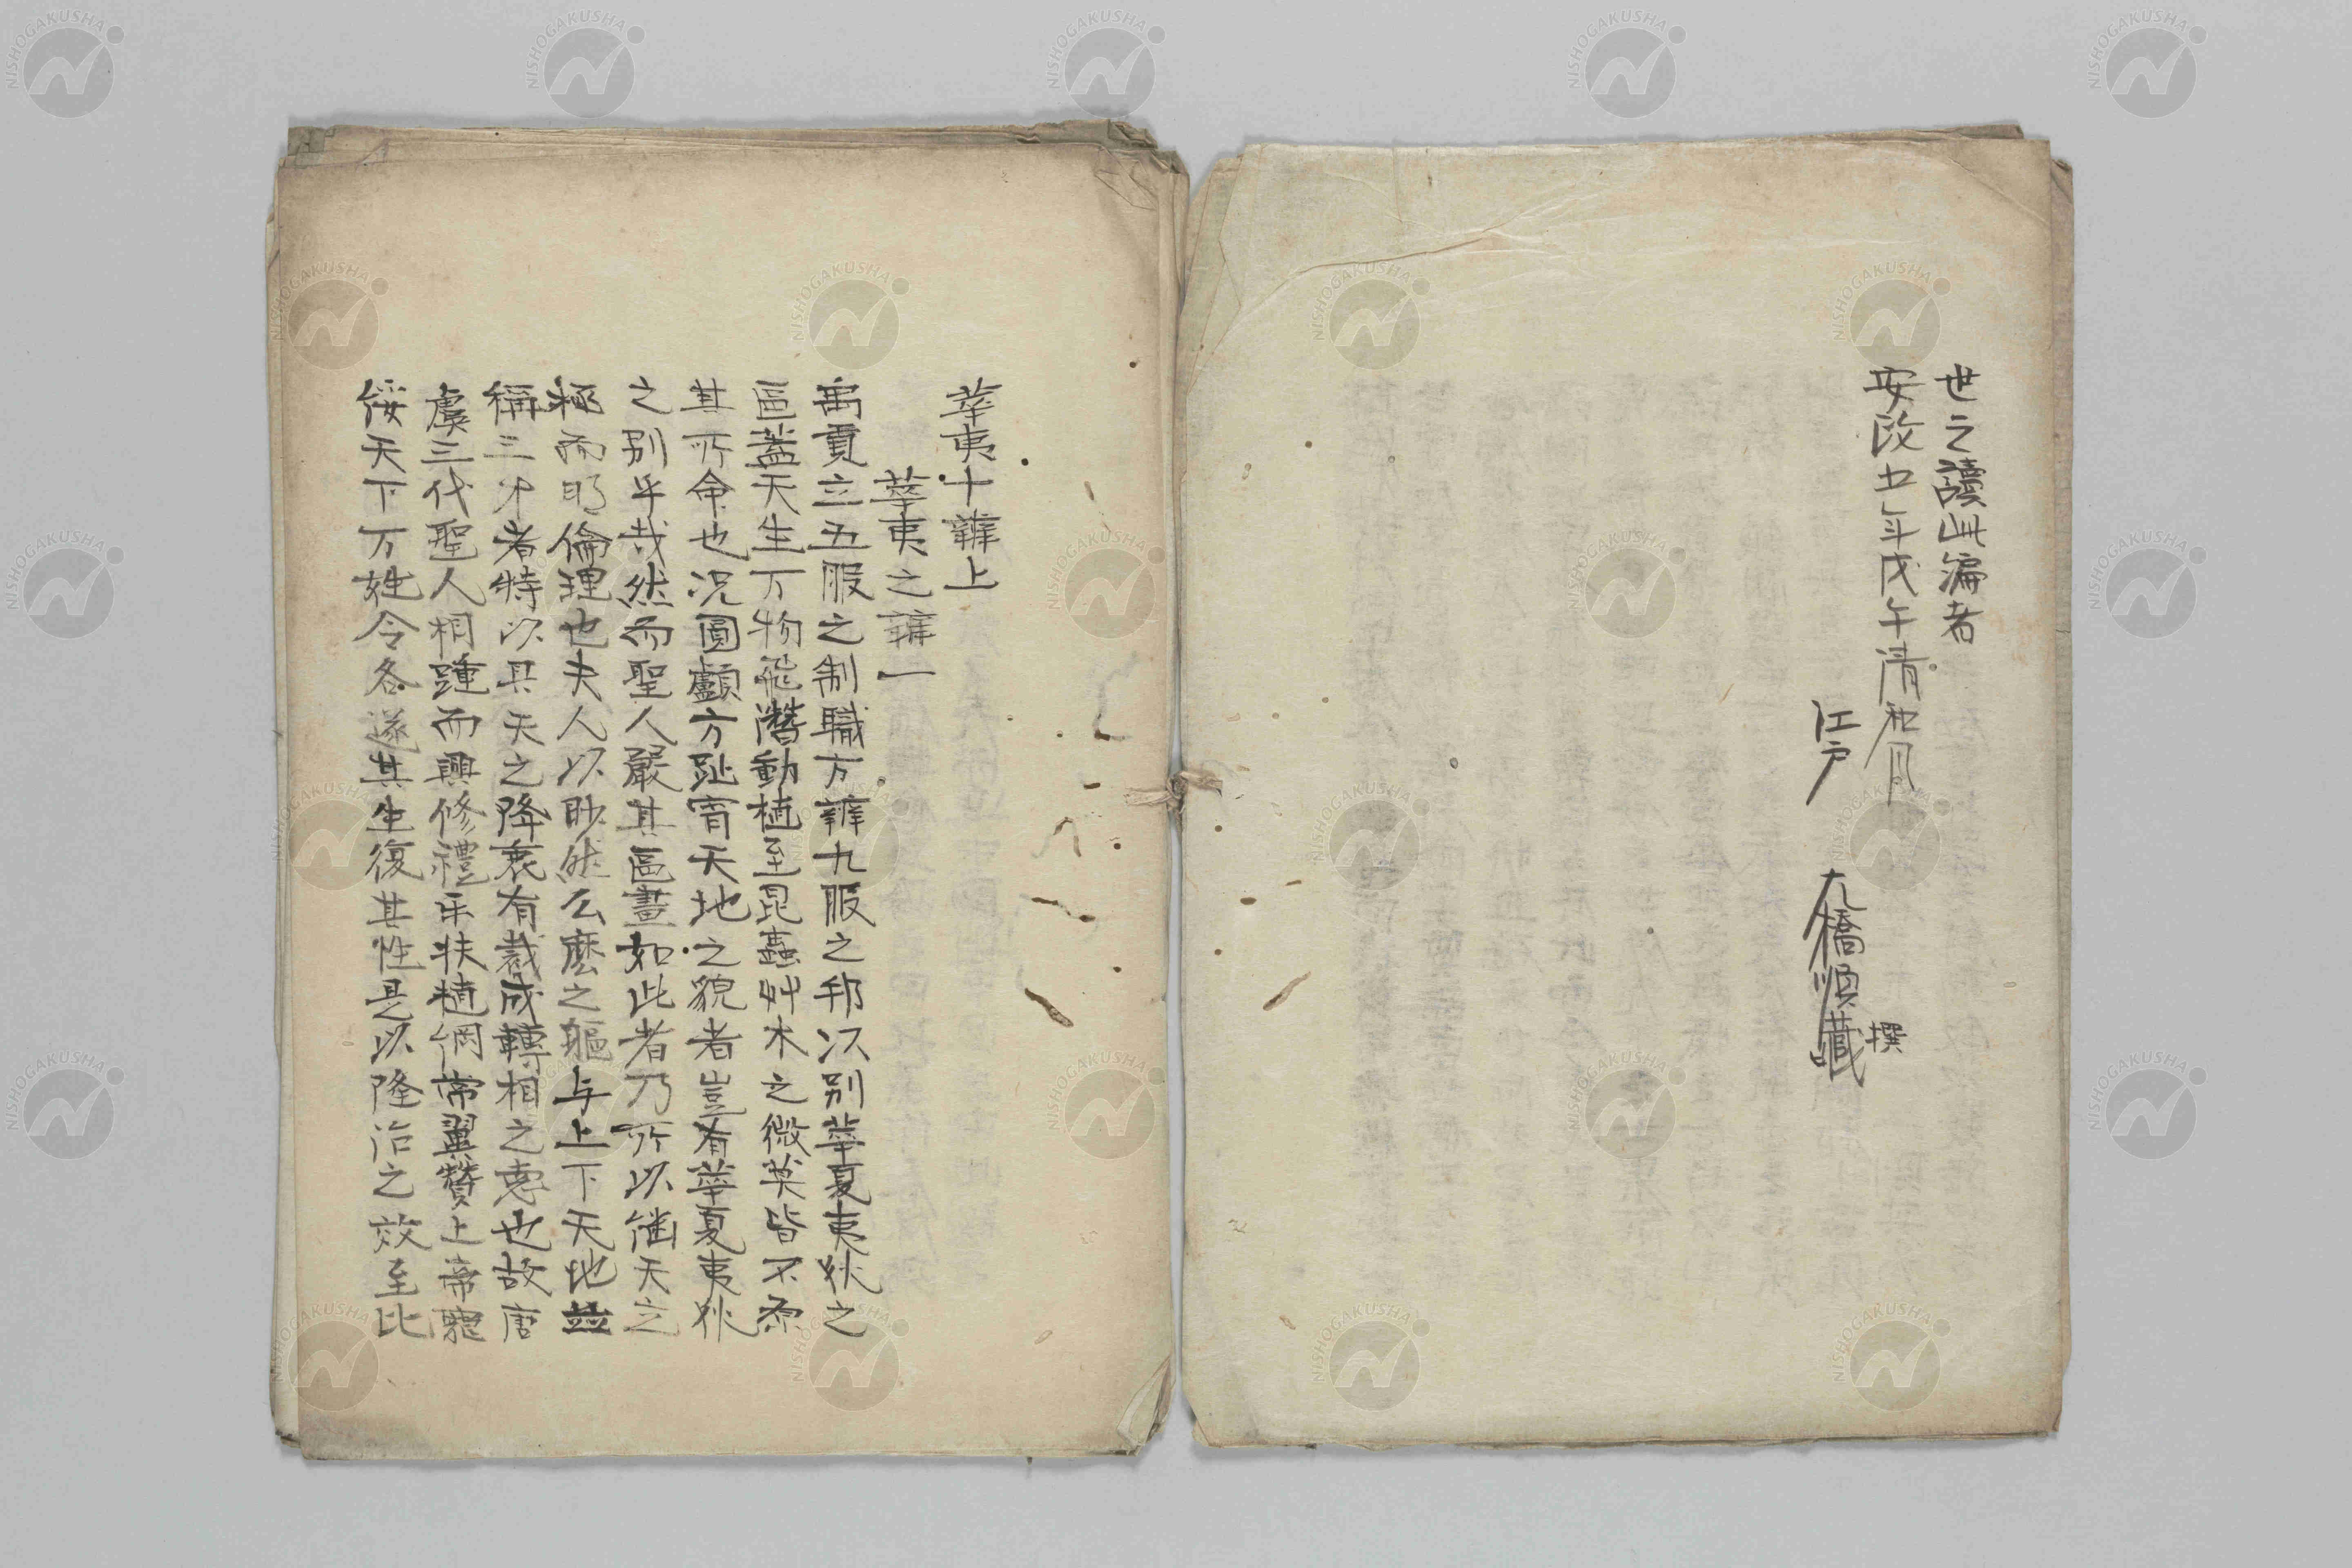 世之讀此編者
安政五年戊午清和月
江戸　大橋順藏撰
華夷十辨上
華夷之辨一
禹貢立五服之制職方辨九服之邦以別華夏夷狄之
區蓋天生万物飛潛動植至昆蟲艸木之微莫皆不系
其所命也况圓顱方趾宵天地之貌者豈有華夏夷狄
之別乎哉然而聖人嚴其區畫如此者乃所以繼天立
極而明倫理也夫人以眇然么麼之軀与上下天地並
稱三才者特以具天之降衷有裁成輔相之惪也故唐
虞三代聖人相踵而興修禮乐扶植綱常翼贊上帝寵
綏天下万姓令各遂其生復其性是以隆治之效至比
NISHOGAKUSHA